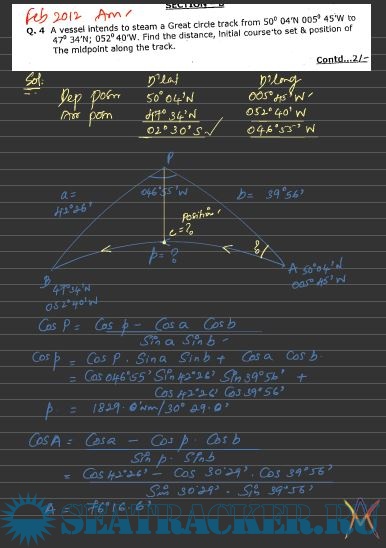 SECTION - B
Feb 2012 Am
Q. 4 A vessel intends to steam a Great circle track from 50° 04'N 005° 45'W to
47° 34'N; 052° 40'W. Find the distance, initial course to set & position of
The midpoint along the track.
Contd...2/-
Sol:
D'lat D'long
Dep posn 50° 04'N 005° 45'W
Arr posn 47° 34'N 052° 40'W
02° 30'S 046° 55'W
P
a = 046° 55'W b = 39° 56'
42° 26'
Position
c = ?
p = ?
B A 50° 04'N
47° 34'N 005° 45'W
052° 40'W
Cos P = Cos p - Cos a Cos b
Sin a Sin b
Cos p = Cos P . Sin a Sin b + Cos a Cos b
= Cos 046° 55' Sin 42° 26' Sin 39° 56' +
Cos 42° 26' Cos 39° 56'
p = 1829.0 nm / 30° 29.0'
Cos A = Cos a - Cos p . Cos b
Sin p . Sin b
= Cos 42° 26' - Cos 30° 29' . Cos 39° 56'
Sin 30° 29' . Sin 39° 56'
A = 76° 16.6'
SEATRACKER.RU